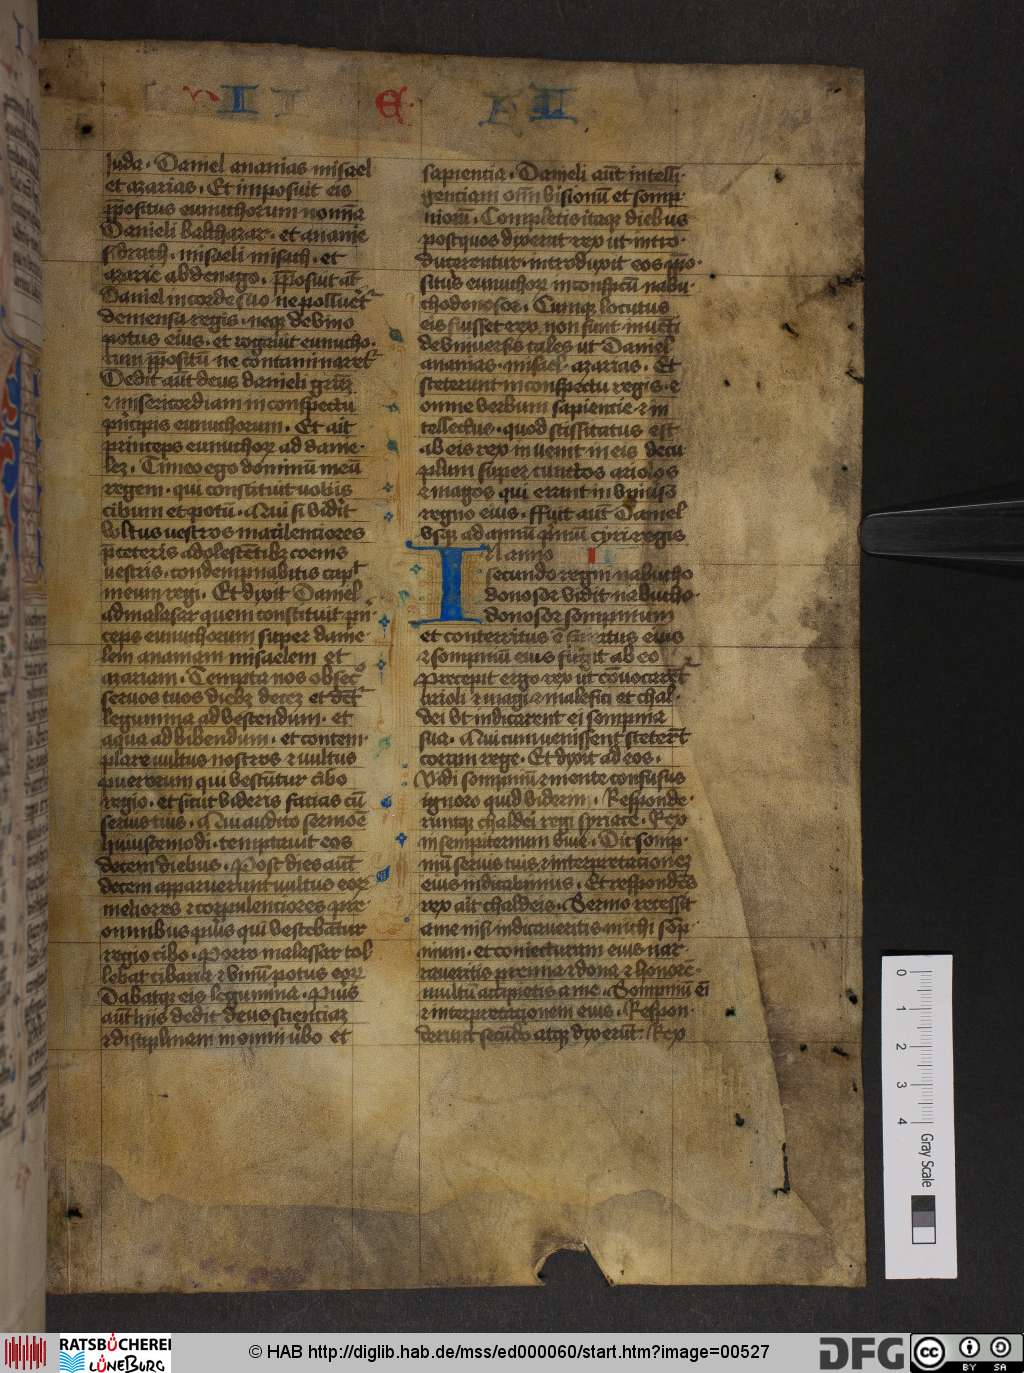 Juda. Daniel ananias misael
et azarias. Et imposuit eis
ppositus eunuchorum nomīa
Danieli balthazar. et ananie
sidrach. misaeli misach. et
azarie abdenago. pposuit aūt
Daniel in corde suo ne pollueret
de mensa regis. neqȝ de vino
potus eius. et rogauit eunucho.
rum ppositū ne contaminaretͬ
Dedit aūt deus danieli grām
et misericordiam in conspectu
pncipis eunuchorum. Et ait
princeps eunuchoꝝ ad danie.
lez. Timeo ego dominum meū
regem. qui constituit uobis
cibum et potū. Qui si vidit
voltus uestros macilenciores
pre ceteris adolescentibꝫ coeuis
uestris. condempnabitis caput
meum regi. Et dixit Daniel
ad malasar quem constituit pn
ceps eunuchorum super danie
lem ananiam misaelem et
azariam. Tempta nos obsecͦ
seruos tuos diebꝫ decez et detͬ
legumina ad vescendum. et
aqua ad bibendum. et contem.
plare uultus nostros et uultus
puerorum qui vescūtur cibo
regio. et sicut videris facias cū
seruis tuis. Qui audito sermoē
huiuscemodi. temptauit eos
decem diebus. Post dies aūt
decem apparuerunt uultus eoꝝ
meliores et corpulenciores pre
omnibus pūis qui vescebātur
regio cibo. Porro malassar tol
lebat cibaria et vinū potus eoꝝ
Dabatqȝ eis legumina. Pūis
aūt hiis dedit deus scienciaz
et disciplinam in omni libo et
sapiencia. Danieli aūt intelli.
genciam oīm visionū et somp.
niorū. Completis itaqȝ diebus
post quos dixerat rex ut intro.
ducerentur. introduxit eos ppo.
situs eunuchoꝝ in conspctū nabu.
chodonosor. Cumqȝ locutus
eis fuisset rex non sunt inueti
de vniuersis tales ut Daniel
ananias. misael. azarias. Et
steterunt in conspectu regis. et
omne verbum sapiencie et in
tellectus. quod scissitatus est
ab eis rex inuenit in eis decu
plum super cunctos ariolos
et magos qui erant in vniuso
regno eius. ffuit aūt Daniel
vsqȝ ad annū pmū cyri regis
In anno
secundo regni nabucho
donosor vidit nabucho.
donosor sompnium
et conterritus ē spiritus eius
et sompniū eius fugit ab eo
Precepit ergo rex ut cōuocarētͬ
arioli et magi et malefici et chal.
dei vt indicarent ei sompnia
sua. Qui cum uenissent steterūt
coram rege. Et dixit ad eos.
Vidi sompniū et mente confusus
ignoro quid viderim. Responde.
runtqȝ chaldei regi syriace. Rex
in sempiternum viue. Dic somp.
niū seruis tuis et interpretacionez
eius indicabimus. Et respondēs
rex ait chaldeis. Sermo recessit
a me nisi indicaueritis michi sōp.
nium. et coniecturam eius nar.
raueritis premia et dona et honorē.
multū accipietis a me. Sompniū ei
et interpretacionem eius. Respon.
derunt secūdo atqȝ dixerūt. Rex
0 1 2 3 4
Gray Scale
RATSBÜCHEREI
LÜNEBURG
© HAB http://diglib.hab.de/mss/ed000060/start.htm?image=00527
DFG
cc BY SA